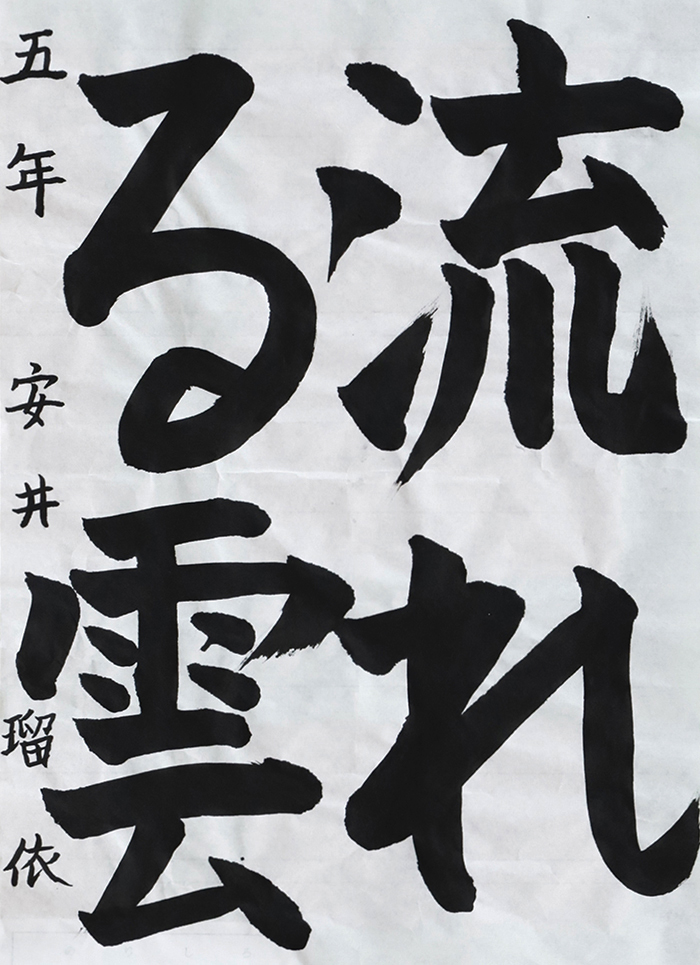 流れ
る雲
五年 安井瑠依